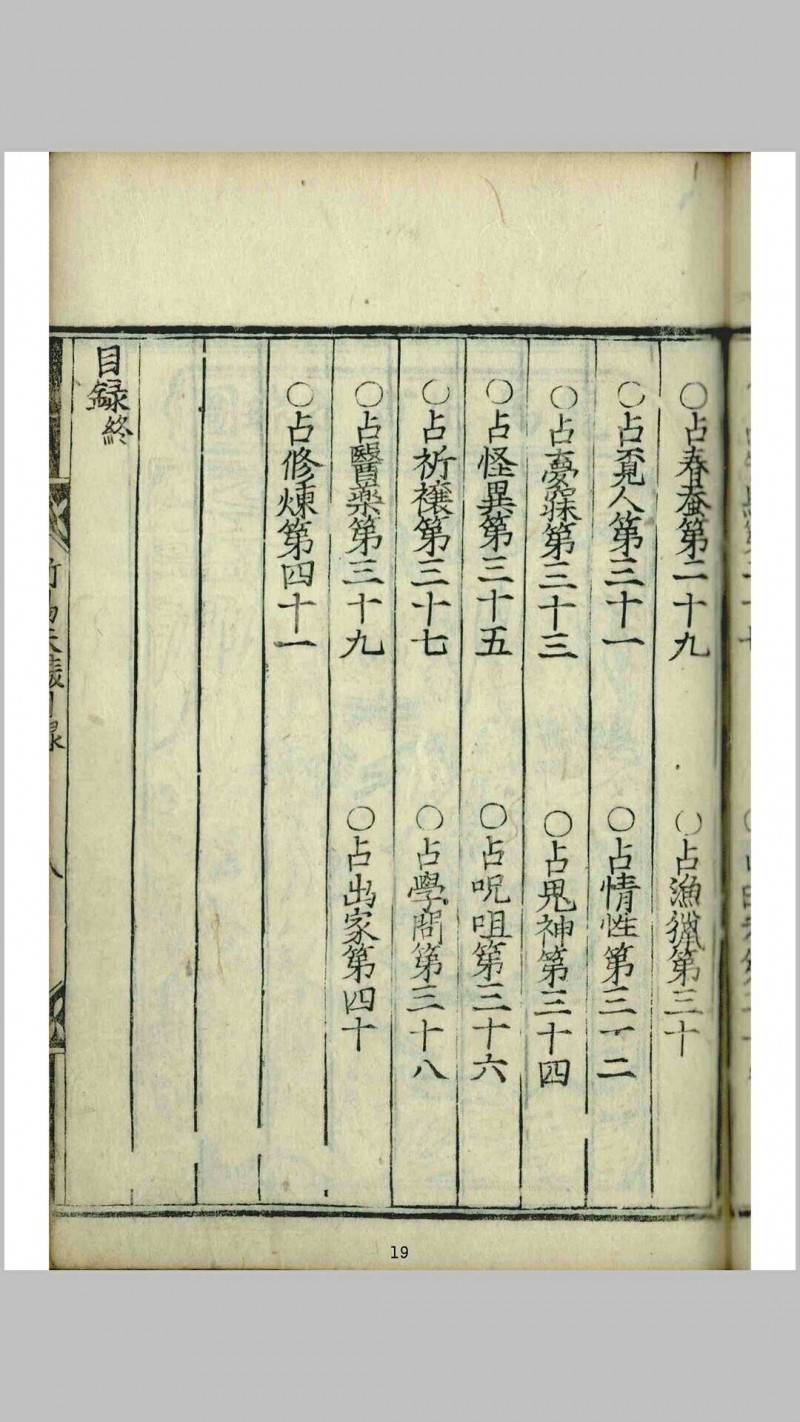 ○占春蚕第二十九 ○占漁獵第三十
○占覔人第三十一 ○占情性第三十二
○占夢寐第三十三 ○占鬼神第三十四
○占怪異第三十五 ○占呪咀第三十六
○占祈禳第三十七 ○占學問第三十八
○占醫藥第三十九 ○占出家第四十
○占修煉第四十一
目録終
八
19